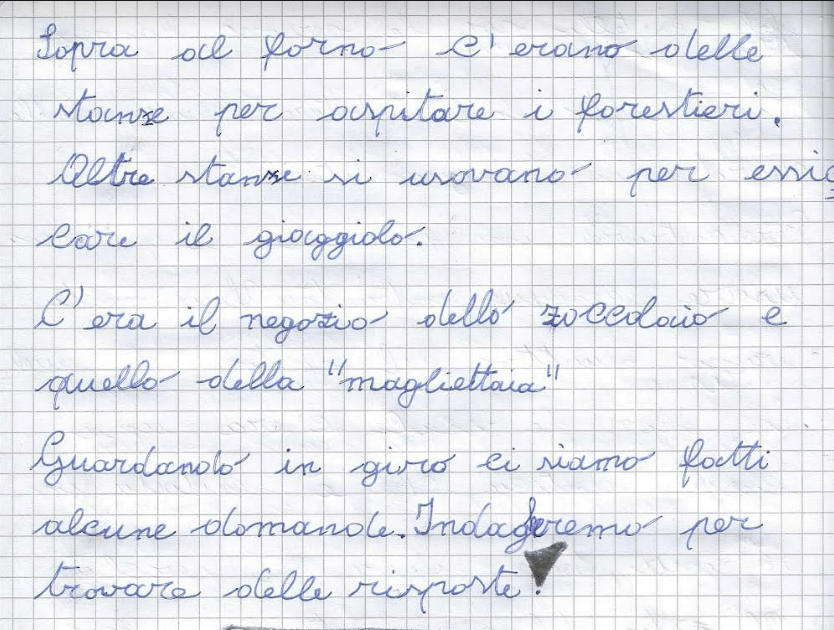 Sopra al forno c'erano delle
stanze per ospitare i forestieri.
Altre stanze si usavano per essic
care il giaggiolo.
C'era il negozio dello zoccolaio e
quello della "magliettaia"
Guardando in giro ci siamo fatti
alcune domande. Indagheremo per
trovare delle risposte!